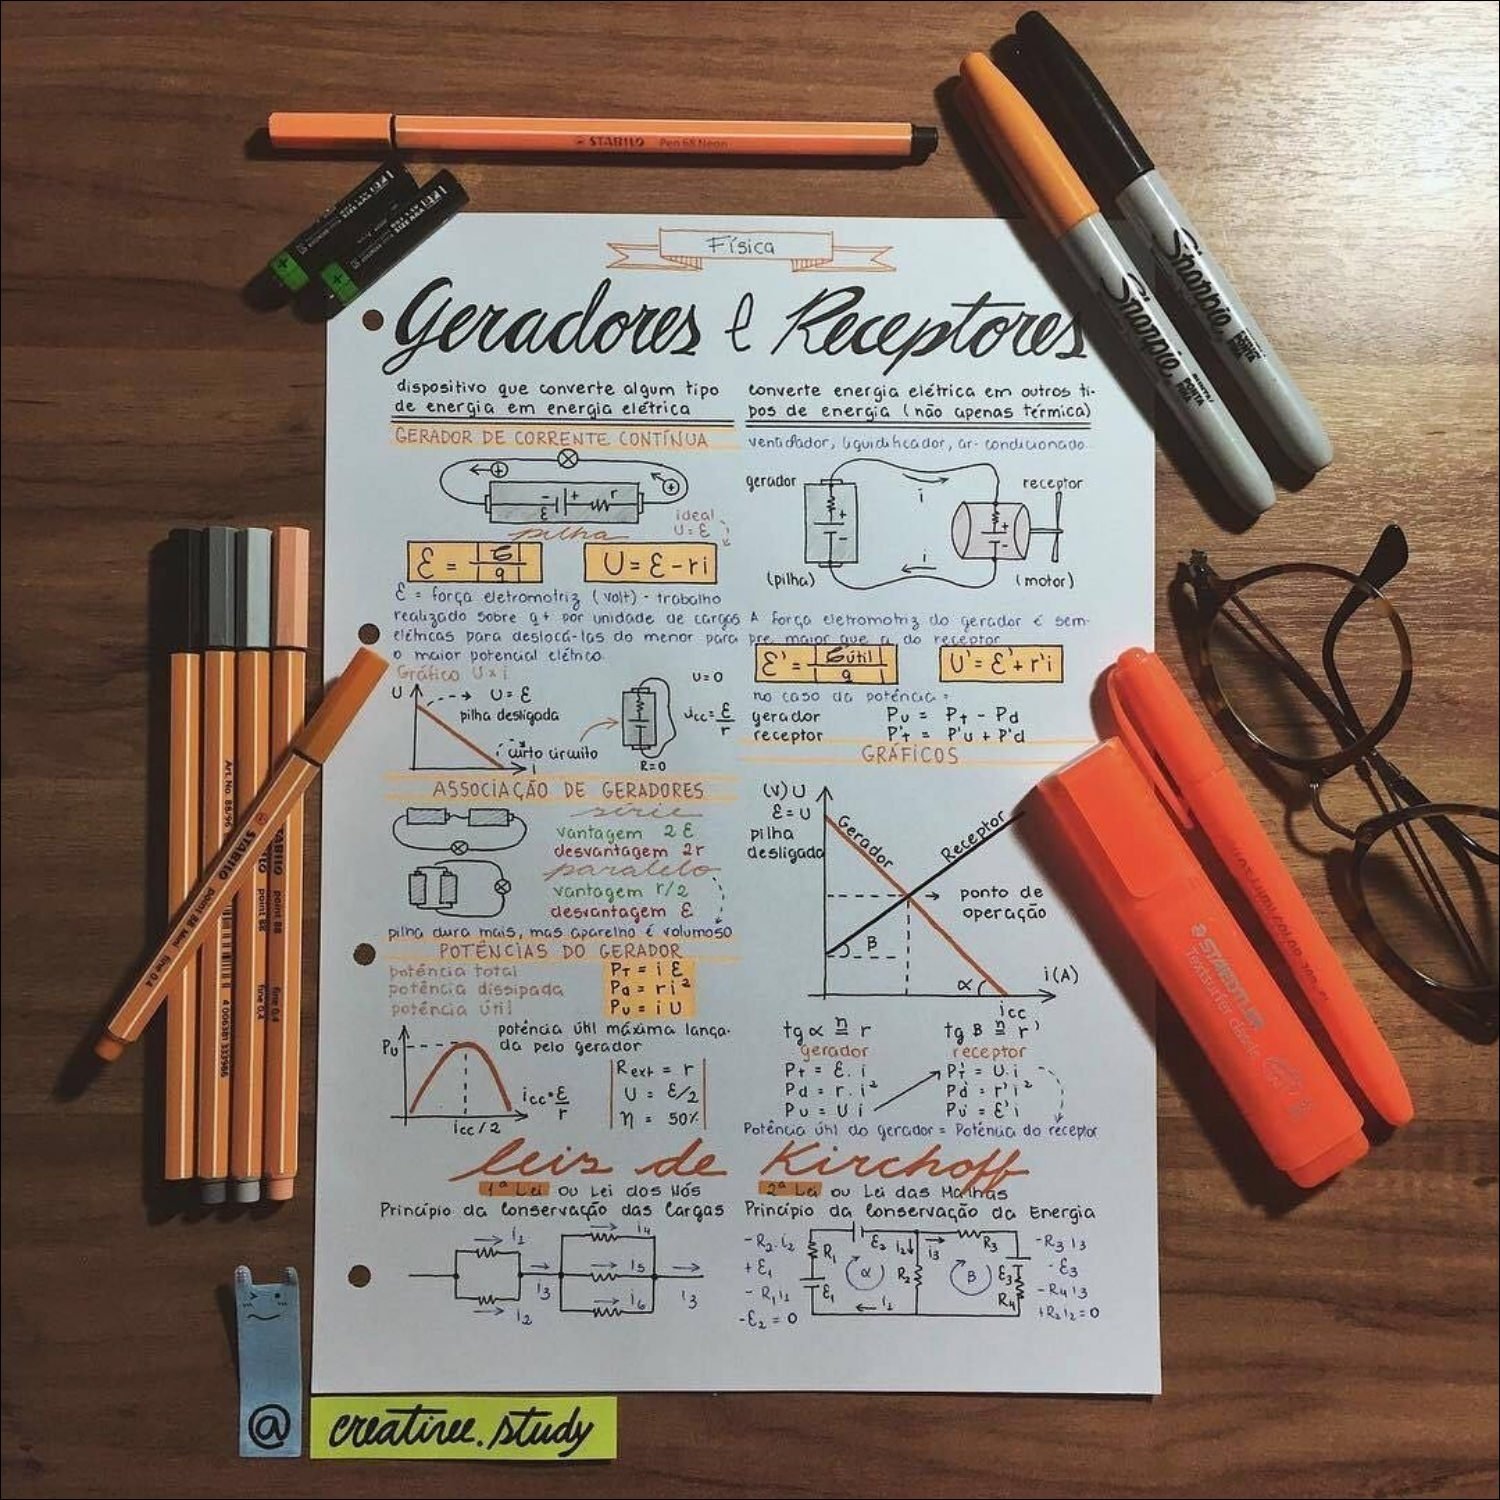 STABILO Pen 68 Neon
Sharpie
Sharpie
Física
Geradores e Receptores
dispositivo que converte algum tipo
de energia em energia elétrica
GERADOR DE CORRENTE CONTÍNUA
ε r
pilha
ideal
U = ε
ε = τ/q U = ε - ri
ε = força eletromotriz (volt) - trabalho
realizado sobre q+ por unidade de cargas
elétricas para deslocá-las do menor para
o maior potencial elétrico.
Gráfico U x i
U
U = ε
pilha desligada
curto circuito
i
U = 0
icc = ε/r
R = 0
ASSOCIAÇÃO DE GERADORES
série
vantagem 2ε
desvantagem 2r
paralelo
vantagem r/2
desvantagem ε
pilha dura mais, mas aparelho é volumoso
POTÊNCIAS DO GERADOR
potência total PT = i ε
potência dissipada Pd = ri²
potência útil PU = i U
potência útil máxima lança-
da pelo gerador
PU
icc/2
icc = ε/r
Rext = r
U = ε/2
η = 50%
converte energia elétrica em outros ti-
pos de energia (não apenas térmica)
ventilador, liquidificador, ar-condicionado
gerador
receptor
i
i
(pilha)
(motor)
A força eletromotriz do gerador é sem-
pre maior que a do receptor
ε' = τútil/q U' = ε' + r'i
no caso da potência =
gerador PU = Pt - Pd
receptor P't = P'u + P'd
GRÁFICOS
(V) U
ε = U
pilha
desligada
Gerador
Receptor
ponto de
operação
β
α
i (A)
icc
tg α n= r tg β n= r'
gerador receptor
Pt = ε.i P't = U.i
Pd = r.i² P'd = r'i²
PU = Ui P'u = ε'i
Potência útil do gerador = Potência do receptor
leis de Kirchoff
1ª Lei ou Lei dos Nós
Princípio da Conservação das Cargas
i1 i2 i3 i4 i5 i6 i3
2ª Lei ou Lei das Malhas
Princípio da Conservação da Energia
-R2.i2
+ε1
-R1i1
-ε2 = 0
R1 ε1 ε2 i2 i3 R2 R3 ε3 R4 i1
α β
-R3i3
-ε3
-R4i3
+R2i2 = 0
STABILO point 88 Mini fine 0.4
Art. No. 88/96
STABILO point 88 fine 0.4
point 88 fine 0.4
4 006381 333986
STAEDTLER
Textsurfer classic
@ creativee.study